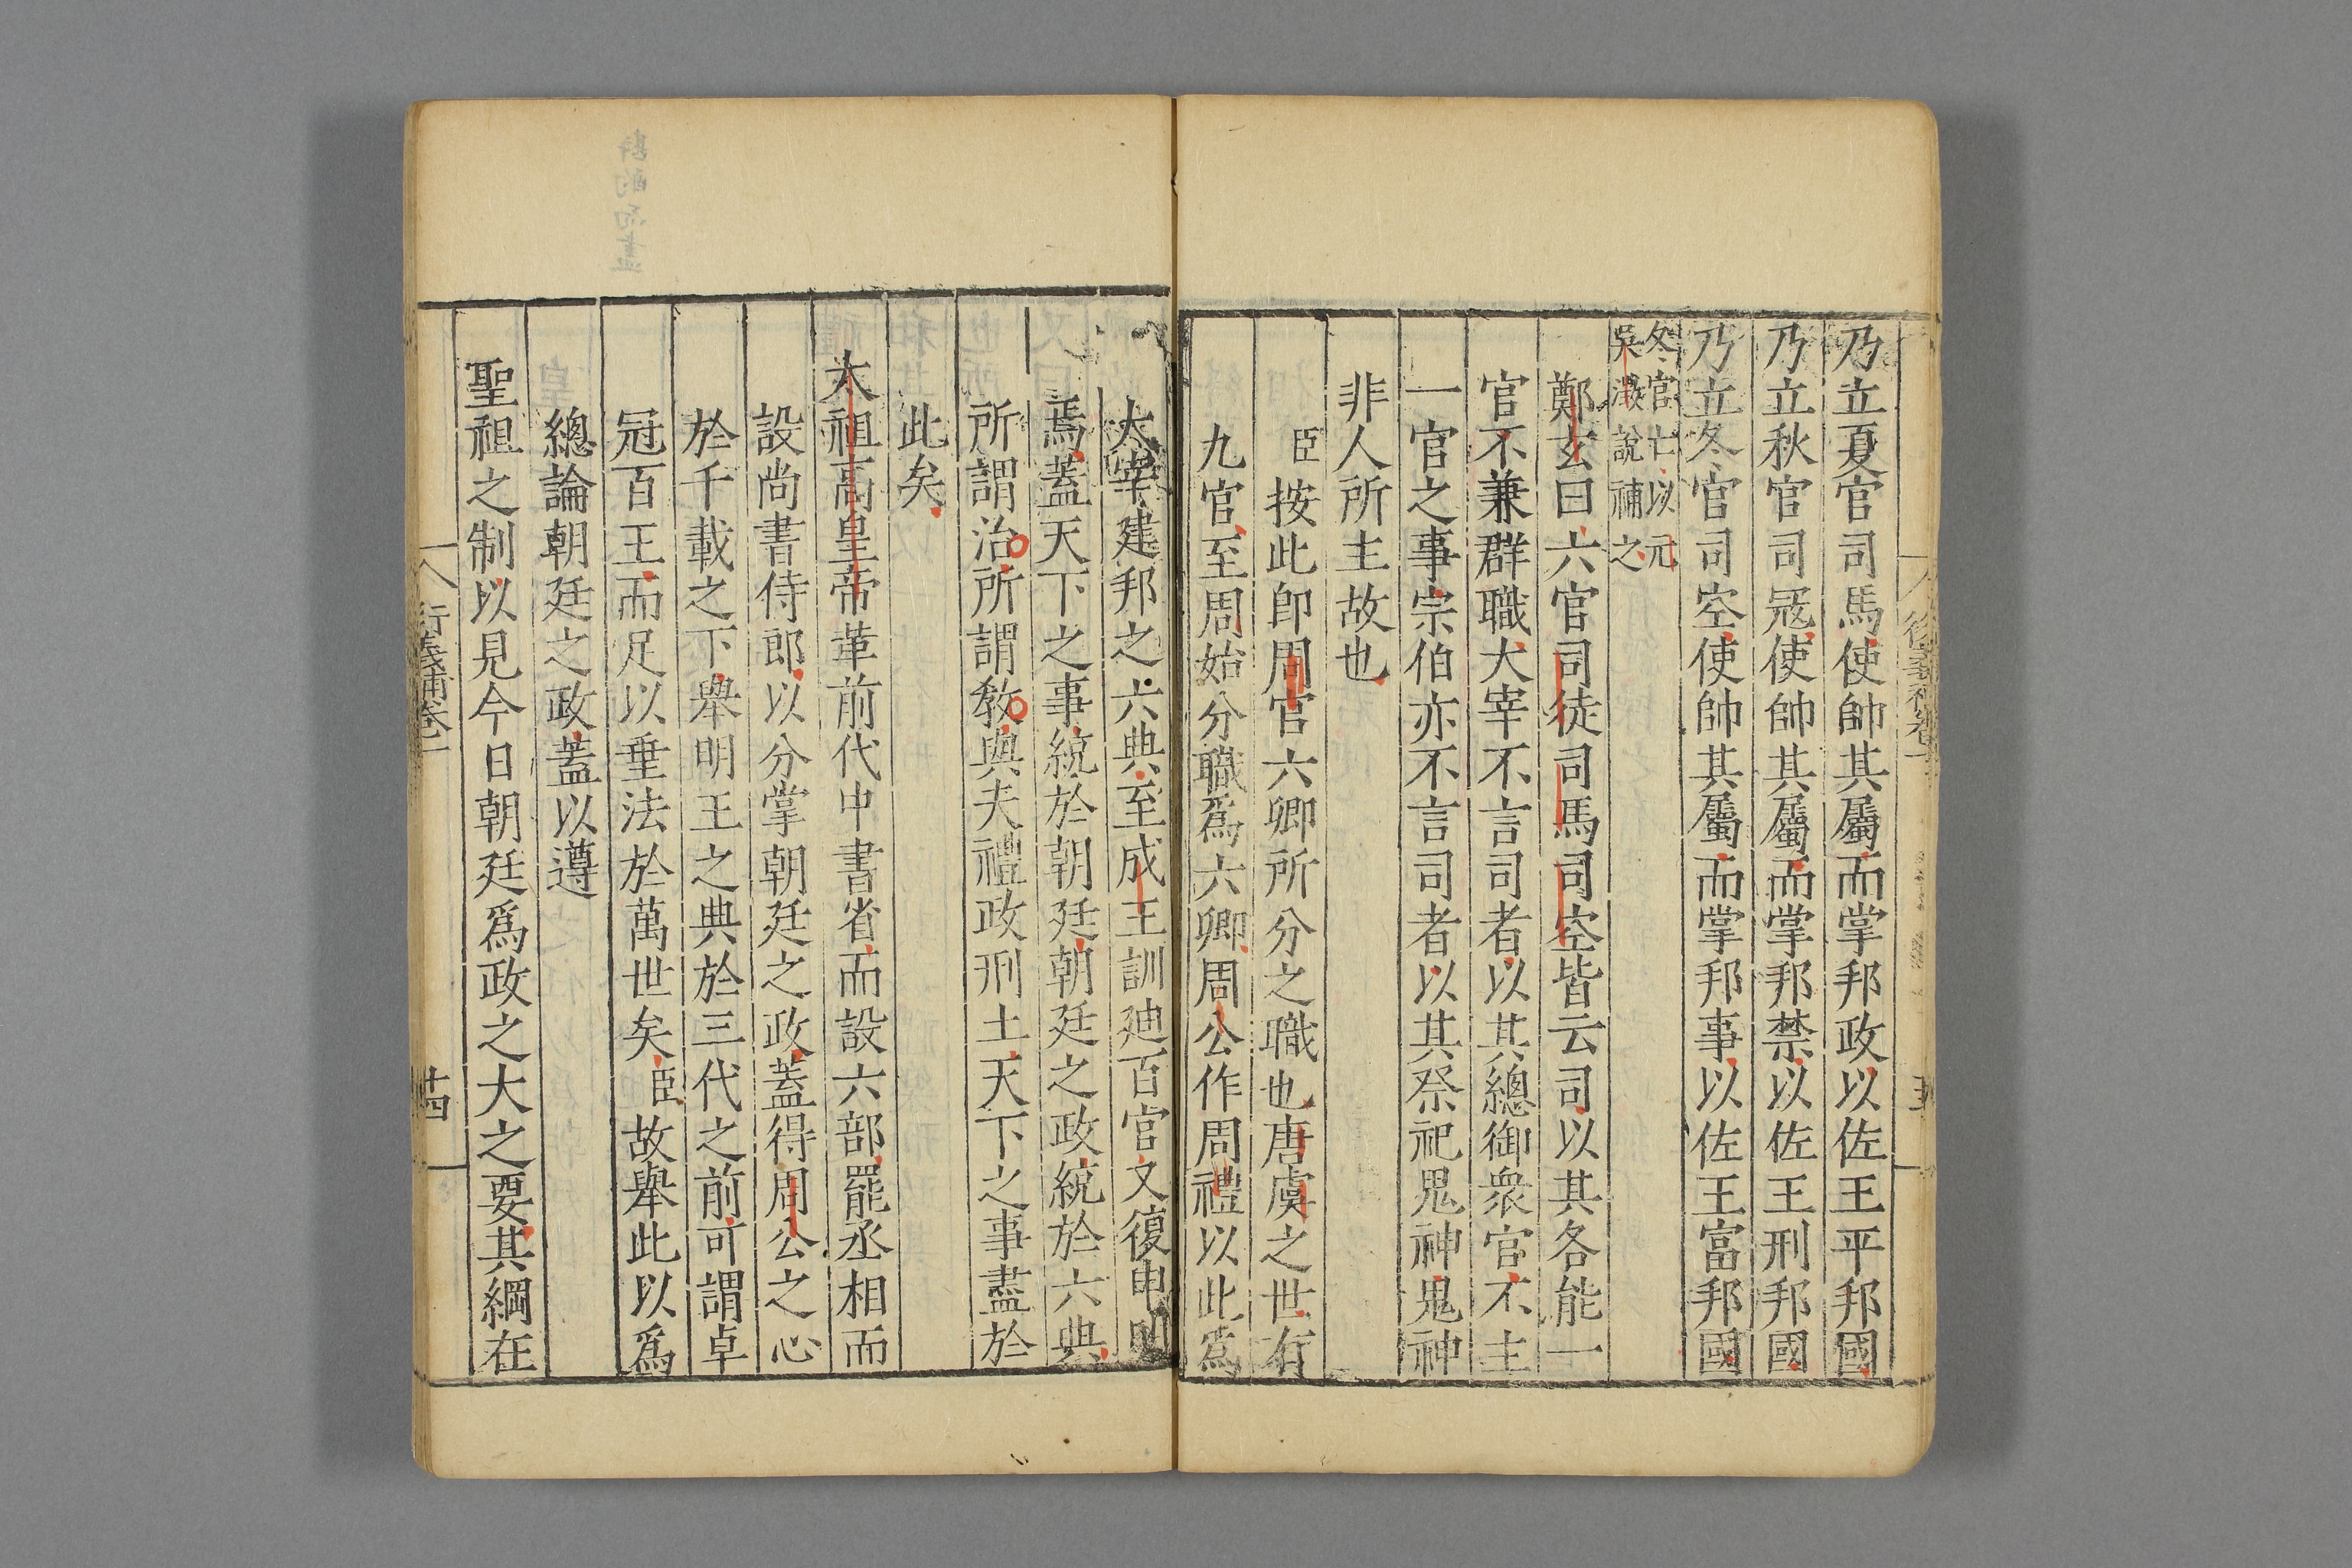 乃立夏官司馬使帥其屬而掌邦政以佐王平邦國
乃立秋官司冦使帥其屬而掌邦禁以佐王刑邦國
乃立冬官司空使帥其屬而掌邦事以佐王富邦國
冬官亡以元
吳澂說補之
鄭玄曰六官司徒司馬司空皆云司以其各能一
官不兼群職大宰不言司者以其總御衆官不主
一官之事宗伯亦不言司者以其祭祀鬼神鬼神
非人所主故也
臣按此卽周官六卿所分之職也唐虞之世有
九官至周始分職爲六卿周公作周禮以此爲
大宰建邦之六典至成王訓廸百官又復申明
焉蓋天下之事統於朝廷朝廷之政統於六典
所謂治所謂敎與夫禮政刑土天下之事盡於
此矣
太祖高皇帝革前代中書省而設六部罷丞相而
設尚書侍郎以分掌朝廷之政蓋得周公之心
於千載之下舉明王之典於三代之前可謂卓
冠百王而足以垂法於萬世矣臣故舉此以爲
總論朝廷之政蓋以遵
聖祖之制以見今日朝廷爲政之大之要其綱在
衍義補卷一
十四